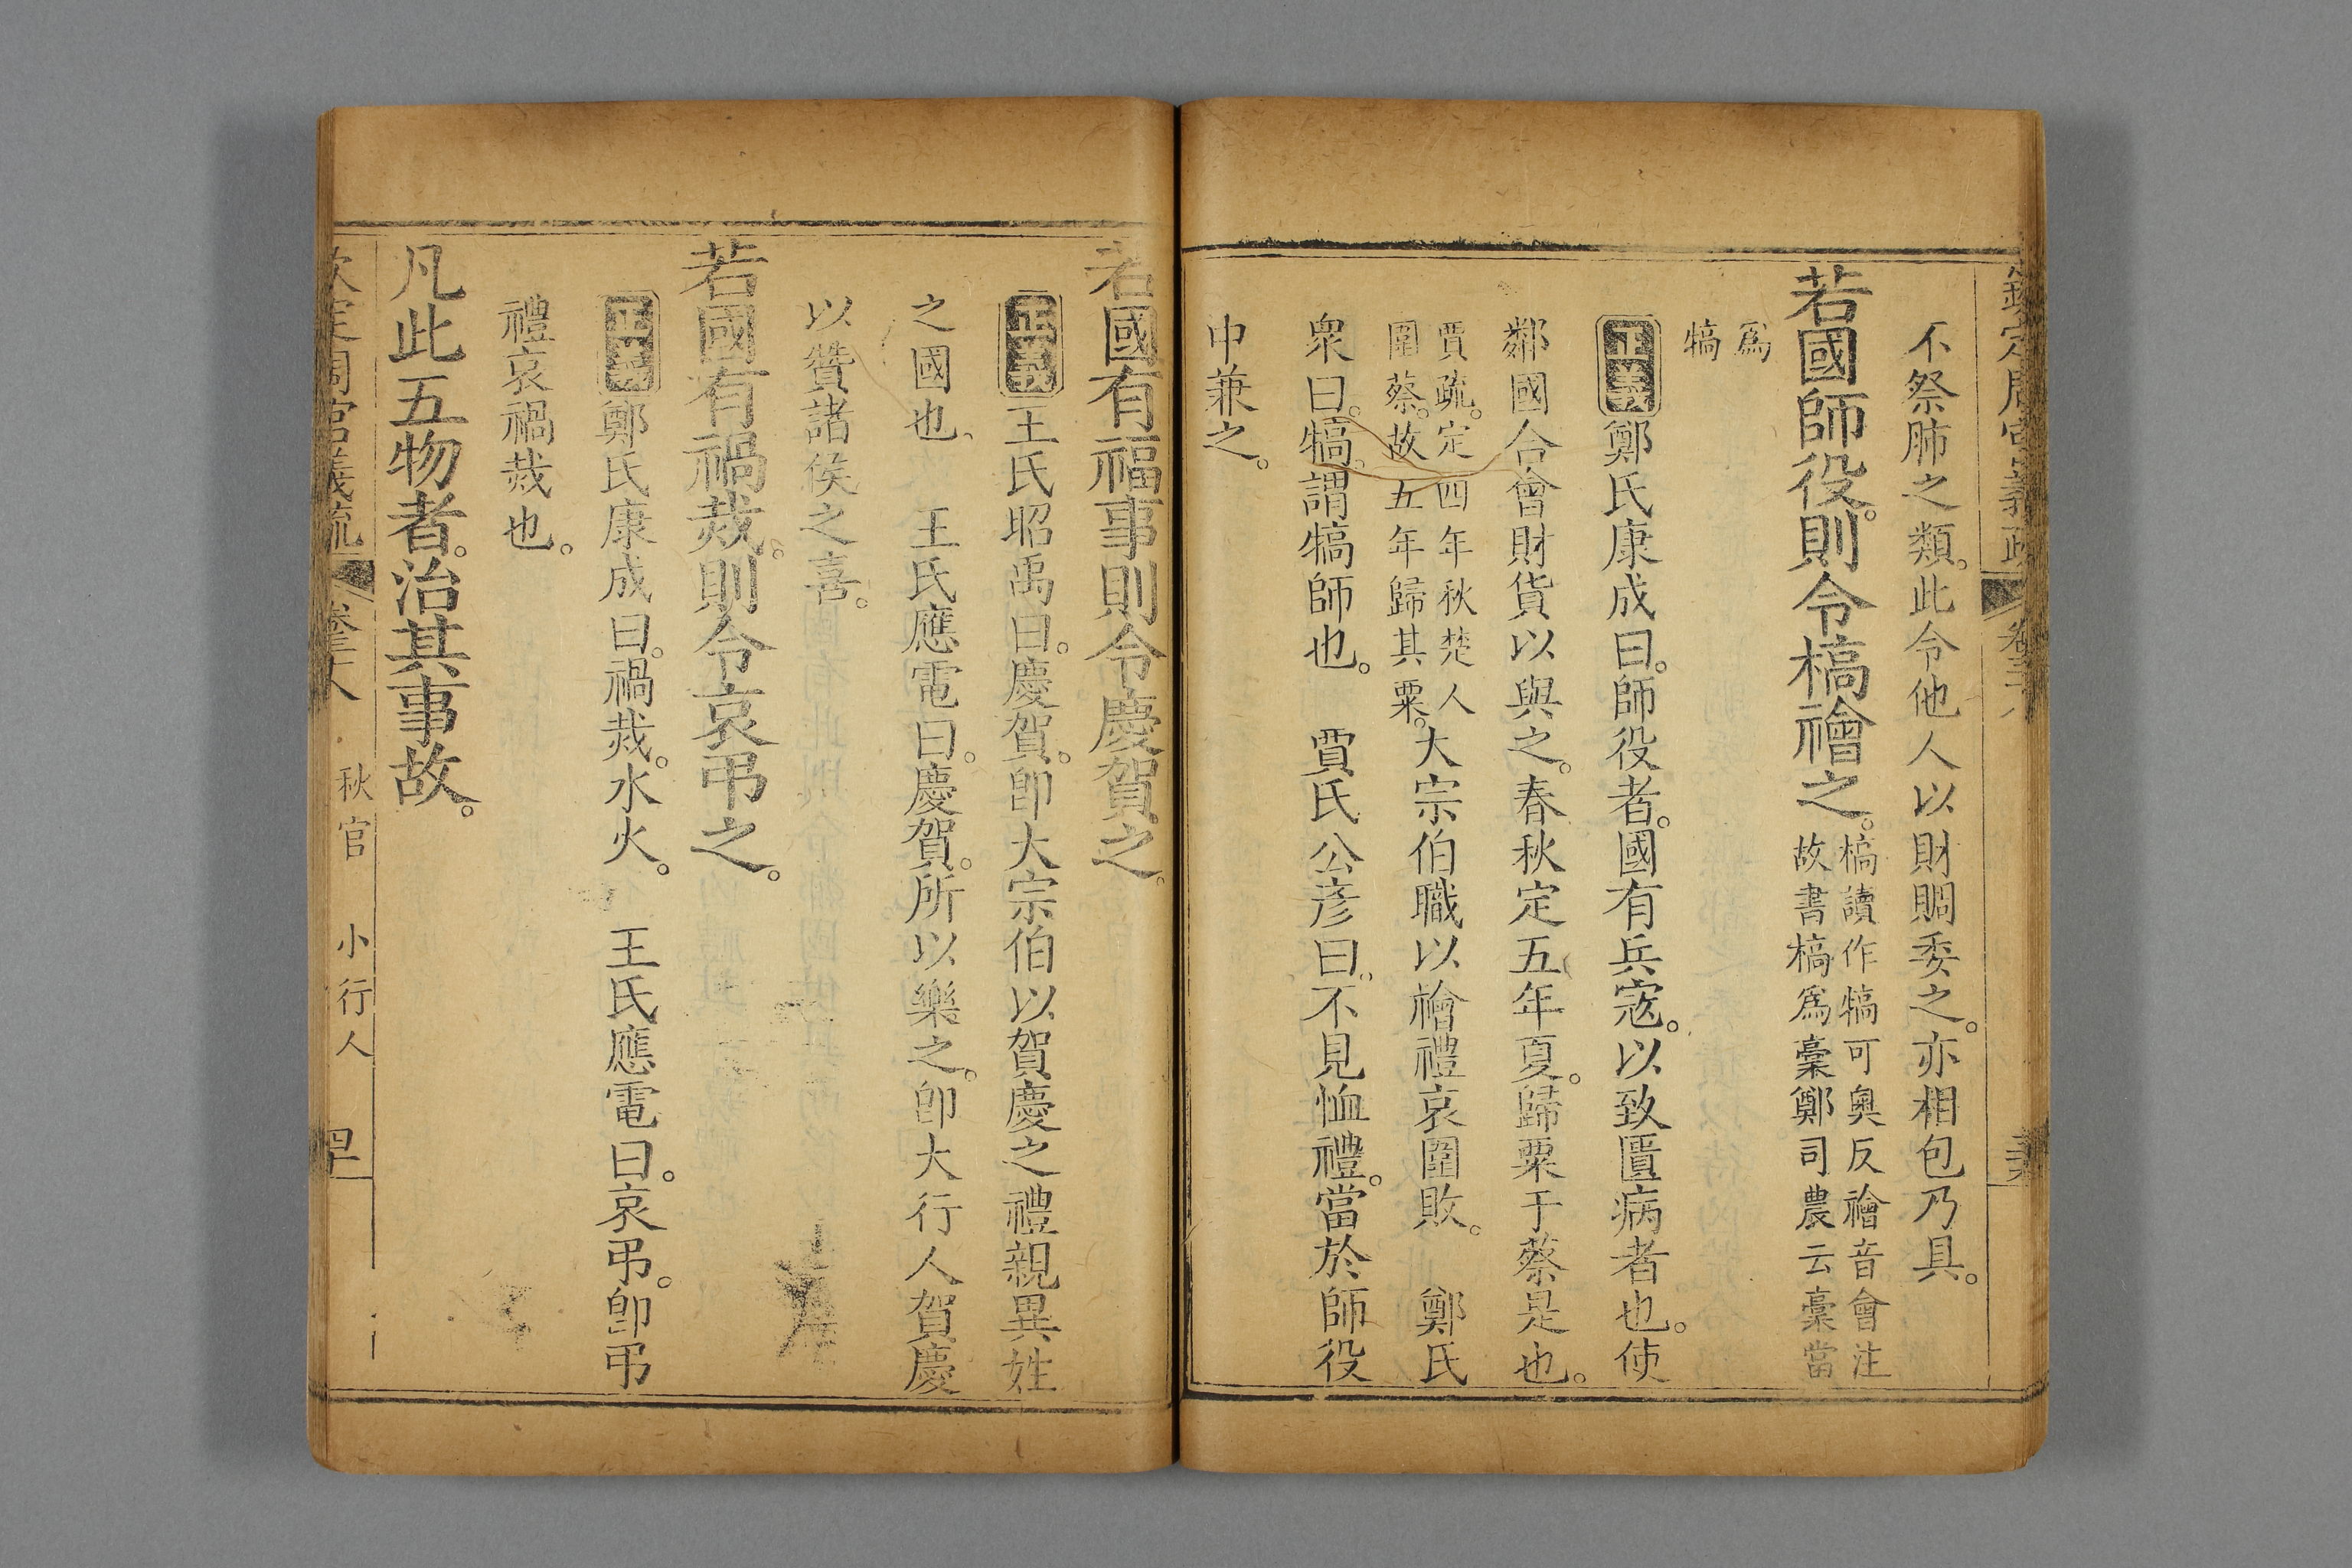 不祭肺之類。此令他人以財賙委之。亦相包乃具。
若國師役。則令槁禬之。槁讀作犒可奥反禬音會注
故書槁爲稾鄭司農云稾當
爲
犒
正義鄭氏康成曰。師役者。國有兵寇。以致匱病者也。使
鄰國合會財貨以與之。春秋定五年夏。歸粟于蔡是也。
賈疏。定四年秋楚人
圍蔡。故五年歸其粟。大宗伯職以禬禮哀圍敗。 鄭氏
衆曰。犒。謂犒師也。 賈氏公彦曰。不見恤禮。當於師役
中兼之。
若國有福事則令慶賀之。
正義王氏昭禹曰。慶賀。卽大宗伯以賀慶之禮親異姓
之國也。 王氏應電曰。慶賀。所以樂之。卽大行人賀慶
以贊諸侯之喜。
若國有禍烖。則令哀弔之。
正義鄭氏康成曰。禍烖。水火。 王氏應電曰。哀弔。卽弔
禮哀禍烖也。
凡此五物者。治其事故。
欽定周官義疏
秋官 小行人